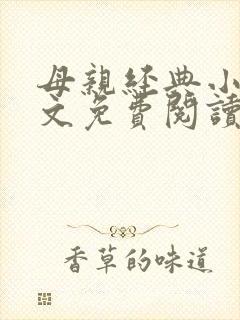 母親經典小
文免費閱讀
香草的味道